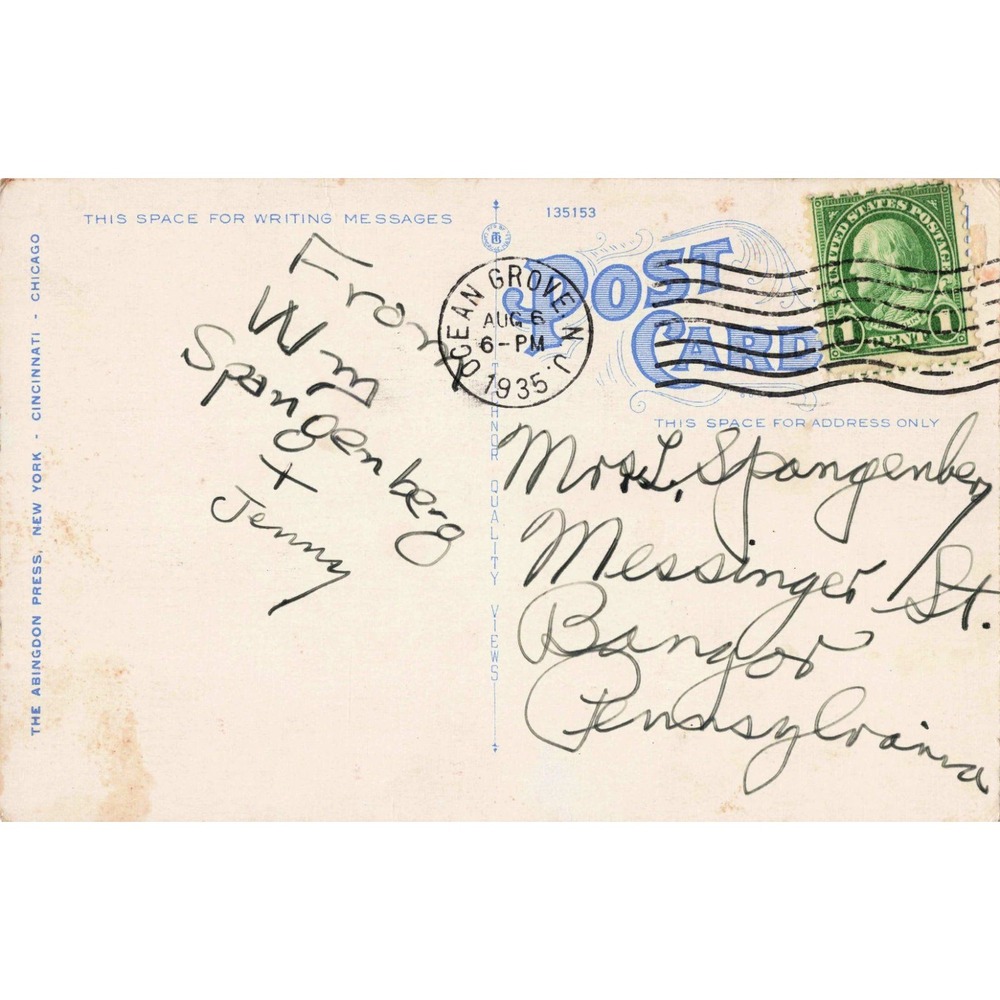 THIS SPACE FOR WRITING MESSAGES
135153
POST CARD
UNITED STATES POSTAGE
1 CENT 1
OCEAN GROVE, N.J.
AUG 6
6-PM
1935
THIS SPACE FOR ADDRESS ONLY
From
Wm
Spangenberg
+
Jenny
Mrs. L. Spangenberg
Messinger St.
Bangor
Pennsylvania
THE ABINGDON PRESS, NEW YORK - CINCINNATI - CHICAGO
QUALITY VIEWS